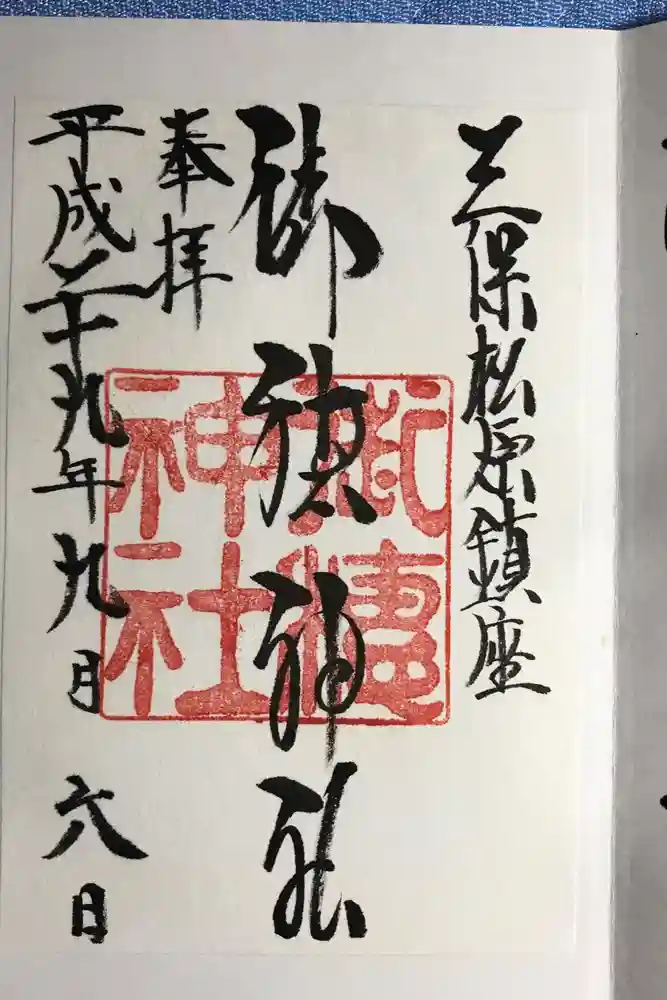 三保松原鎮座
御穂神社
奉拝
平成二十九年九月六日
御穗神社